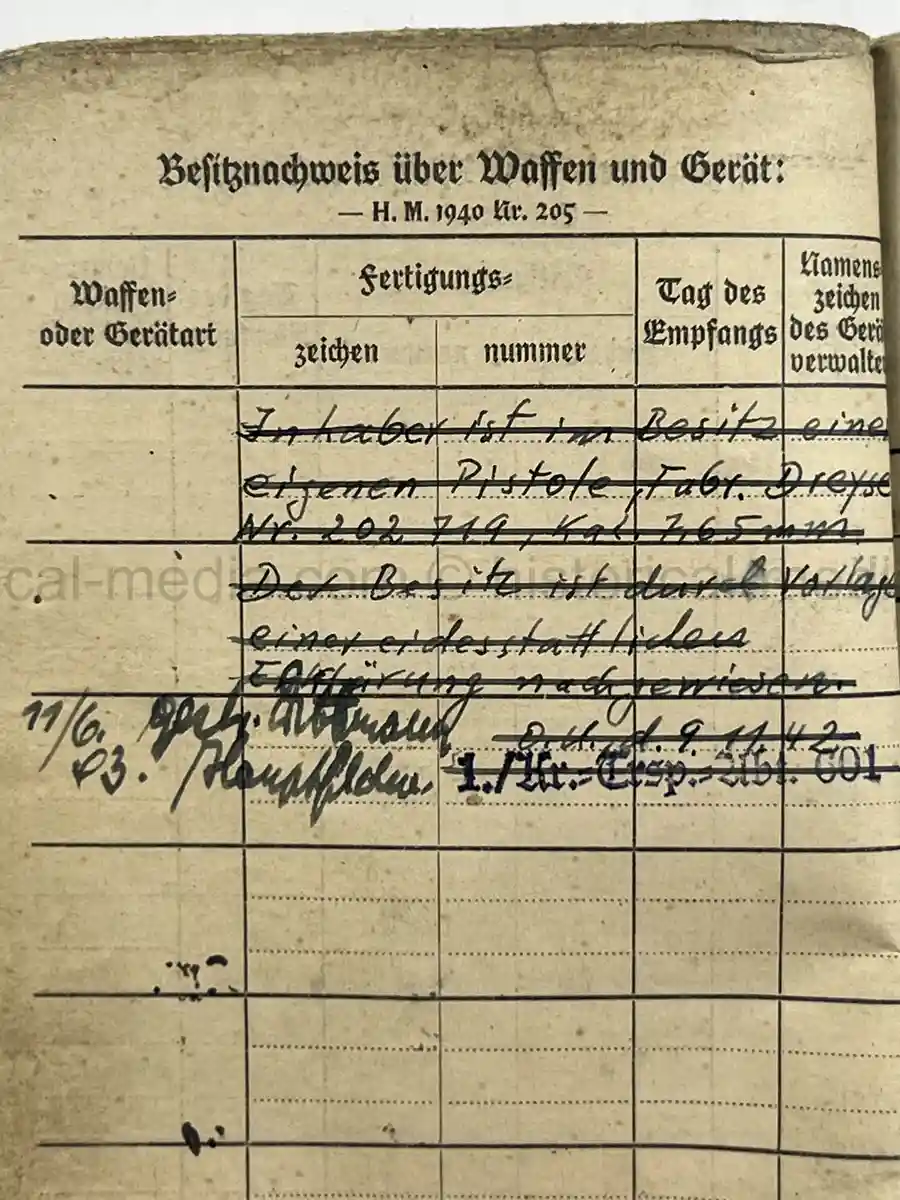 Besitznachweis über Waffen und Gerät:
— H. M. 1940 Nr. 205 —
Waffen-
oder Gerätart
Fertigungs-
zeichen
nummer
Tag des
Empfangs
Namens-
zeichen
des Gerä
verwalte
In haber ist im Besitz eine
eigenen Pistole, Fabr. Dreyse
Nr. 202 719, Kal. 7,65 mm.
Der Besitz ist durch Vorlage
einer eidesstattlichen
Erklärung nachgewiesen.
11/6. gestr.
O.U., d. 9. 11. 42
43. Hauptfeldw.
1./Kr.-Trsp.-Abt. 601